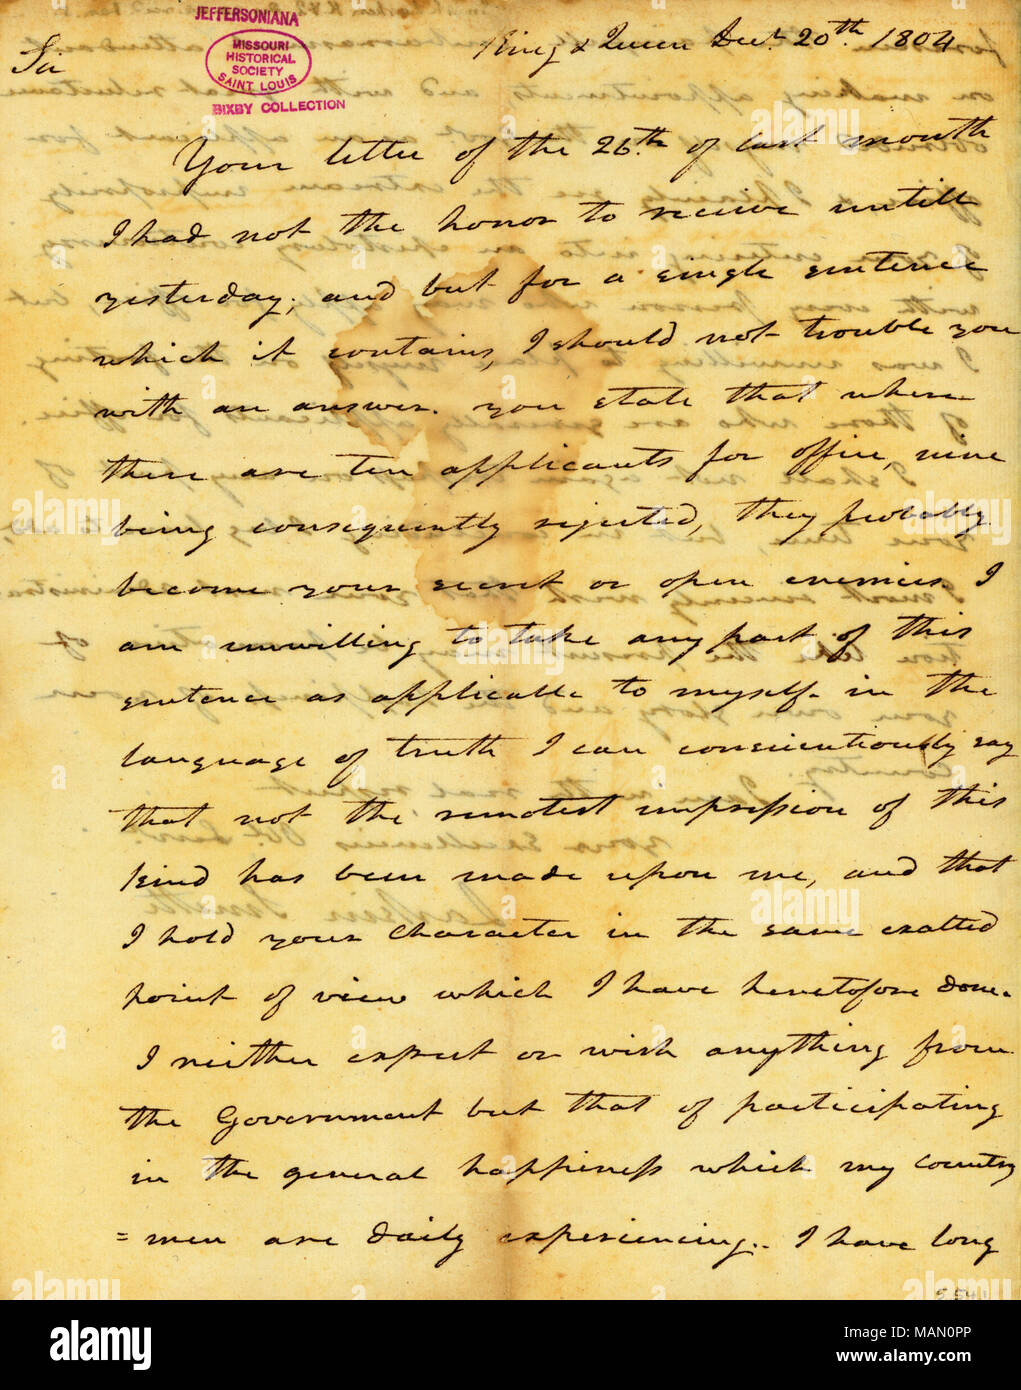 JEFFERSONIANA
MISSOURI
HISTORICAL
SOCIETY
SAINT LOUIS
BIXBY COLLECTION
King & Queen Decr. 20th. 1804
Sir
Your letter of the 26th. of last month
I had not the honor to receive untill
yesterday; and but for a single sentence
which it contains, I should not trouble you
with an answer. you state that where
there are ten applicants for office, nine
being consequently rejected, they probably
become your secret or open enemies. I
am unwilling to take any part of this
sentence as applicable to myself. in the
language of truth I can conscientiously say
that not the remotest impression of this
kind has been made upon me, and that
I hold your Character in the same exalted
point of view which I have heretofore done.
I neither expect or wish anything from
the Government but that of participating
in the general happiness which my Country
=men are daily experiencing. I have long
alamy
Image ID: MAN0PP
www.alamy.com